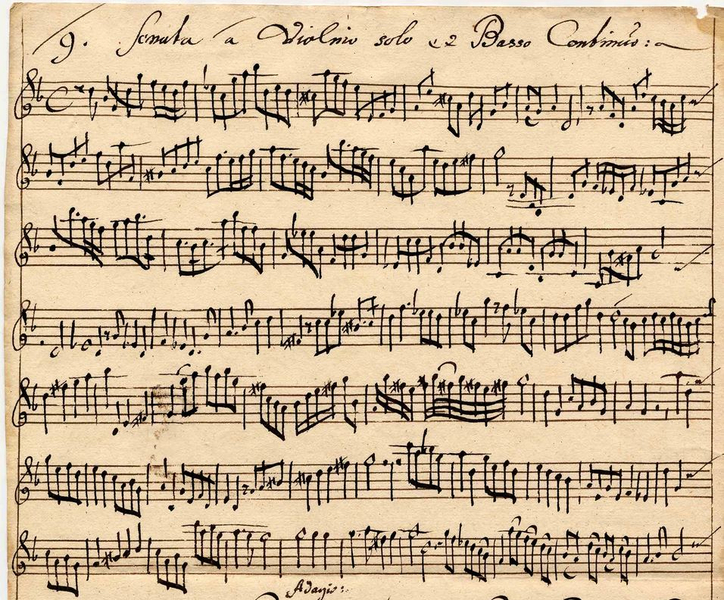 9. Sonata a Violino solo e2 Basso Continuo:
Adagio: